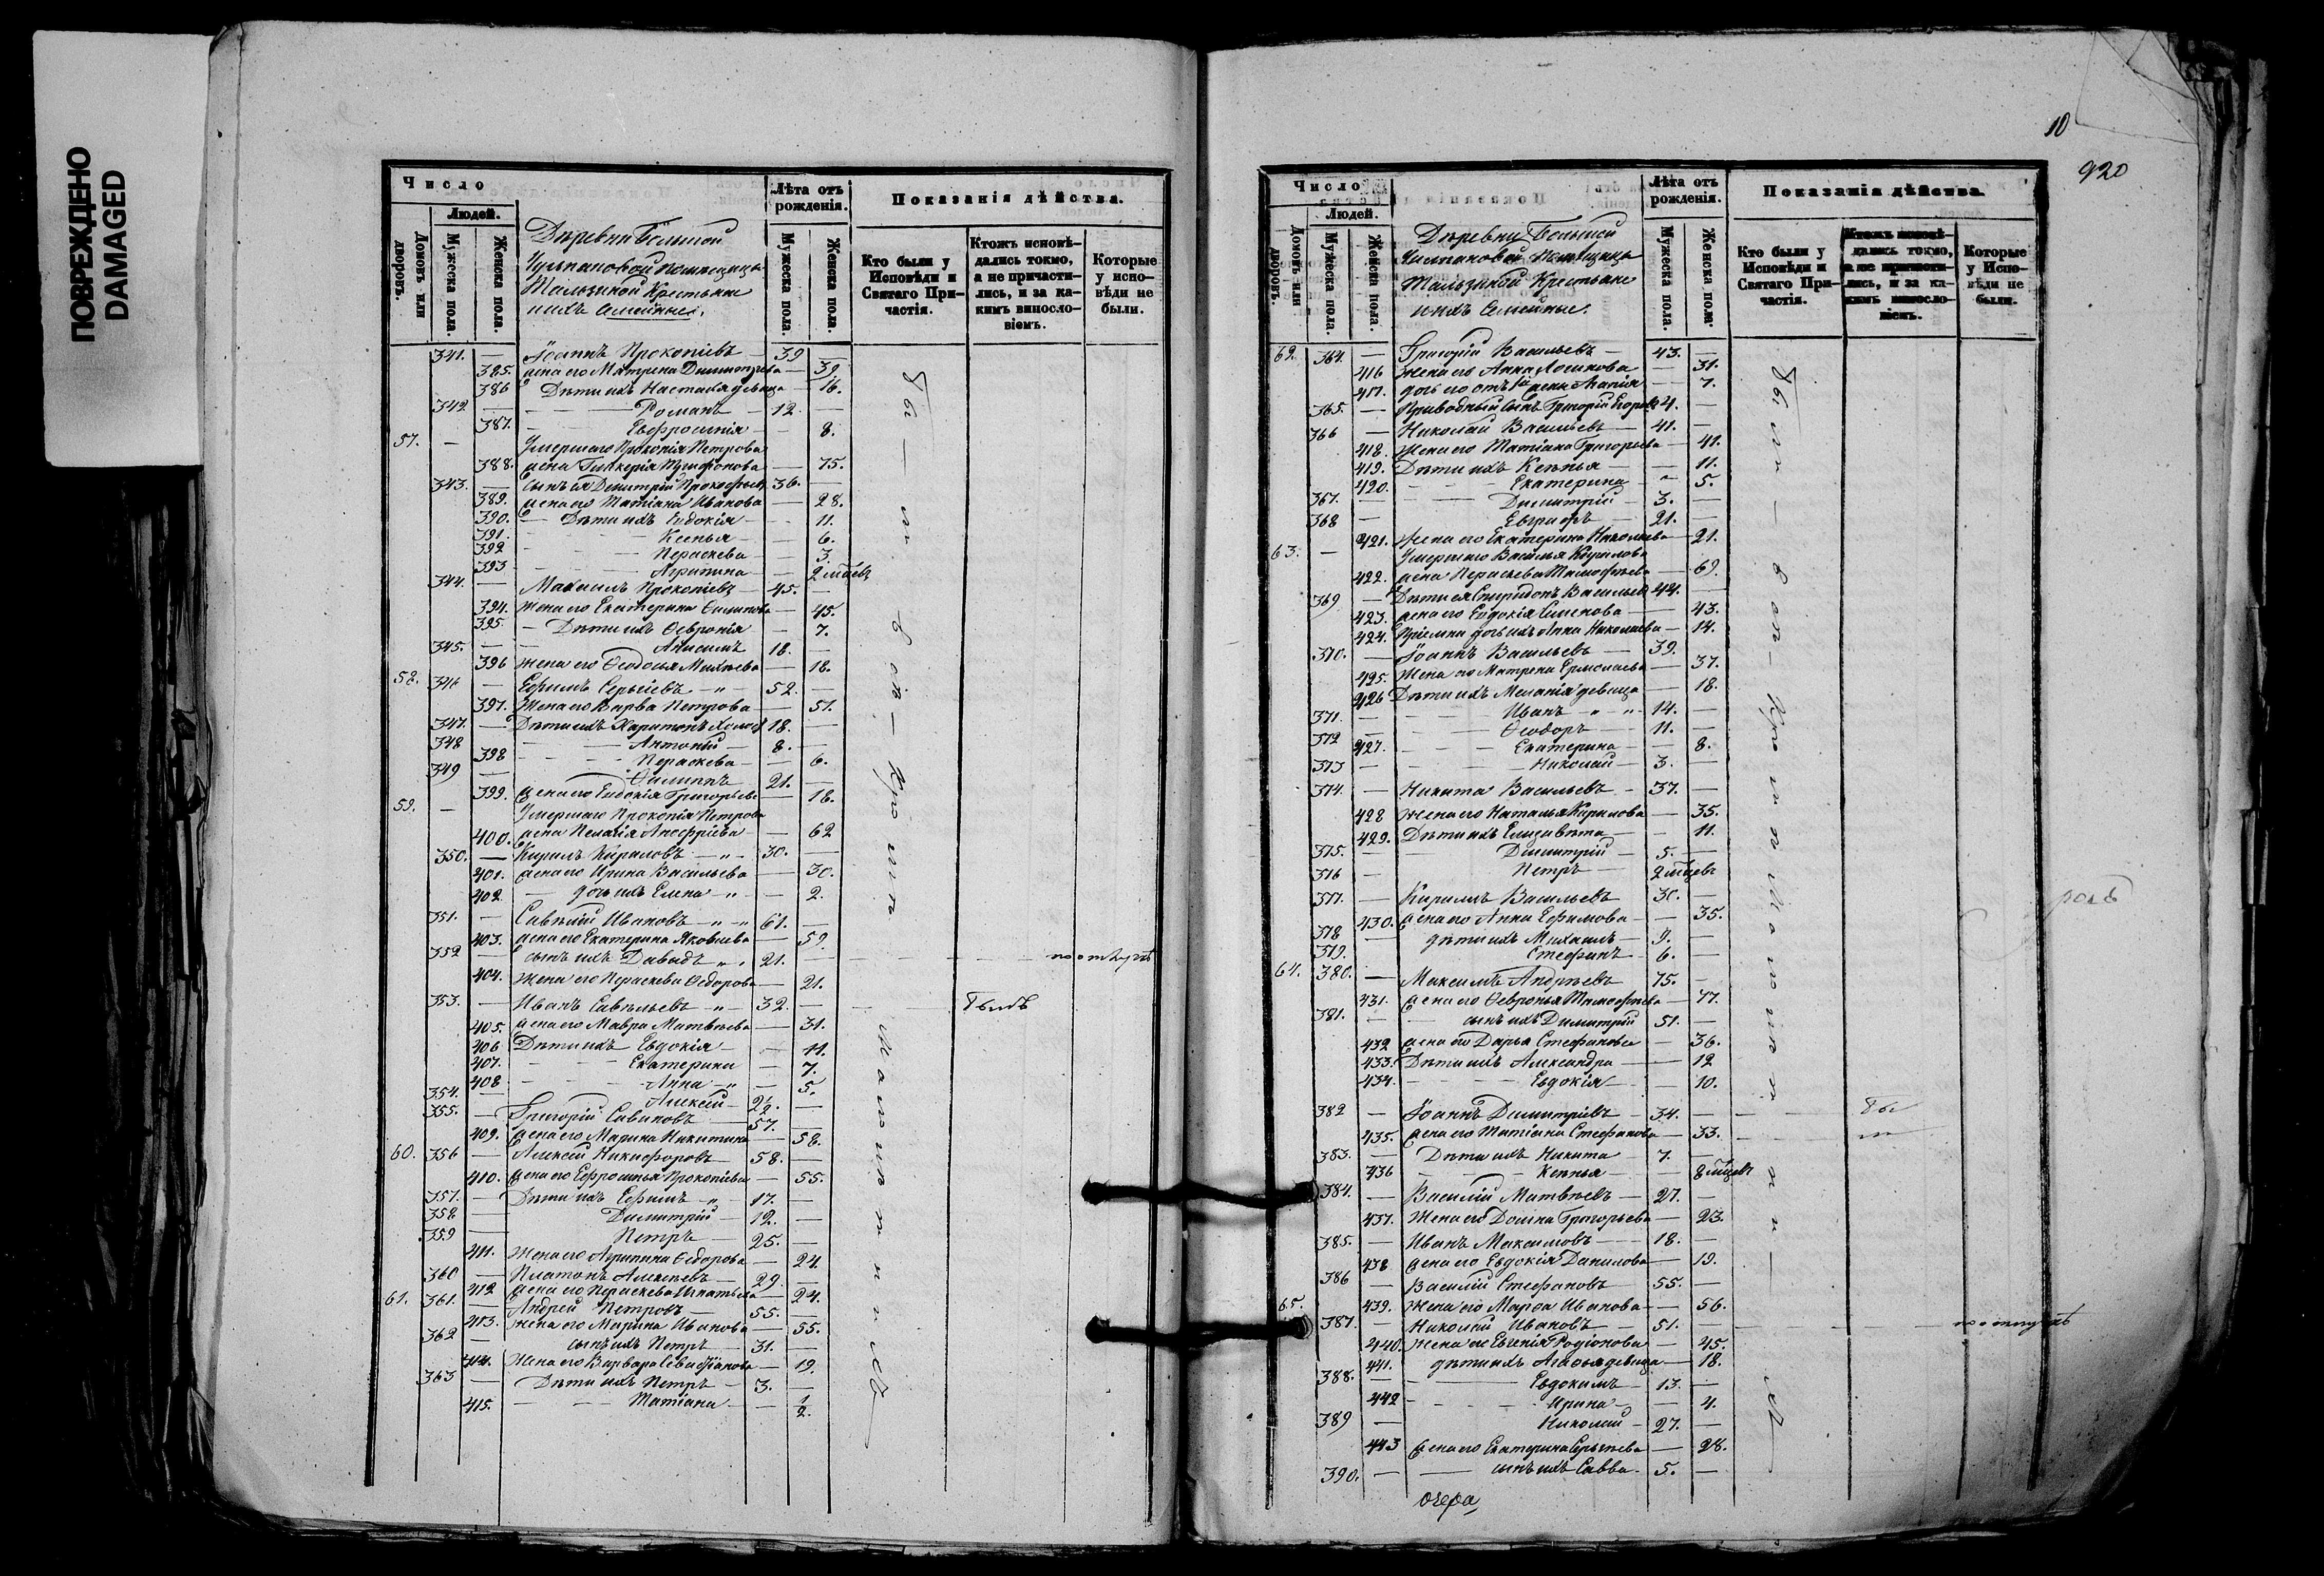 ПОВРЕЖДЕНО
DAMAGED
Число
Людей.
Домовъ или дворовъ.
Мужеска пола.
Женска пола.
Деревни Большой
помещицы
Крестьяне
ихъ Семейные.
Лѣта отъ рожденія.
Мужеска пола.
Женска пола.
Показанія дѣйства.
Кто были у Исповѣди и Святаго Причастія.
Ктожъ исповѣдались токмо, а не причастились, и за какимъ винословіемъ.
Которые у исповѣди не были.
341. — Іоаннъ Прокопіевъ — 39 —
385. жена его Матрона Димитріева — 39.
386 Дѣти ихъ Настасья девица — 16.
342 — Романъ — 12. —
387. Евфросинія — 8.
57. — Умершаго Прокопія Петрова
388. жена Гликерія — 75.
343. — Сынъ ея Димитрій Прокофьевъ 36. —
389. жена его Татіана Иванова — 28.
390. — Дѣти ихъ Евдокія — 11.
391. Ксенья — 6.
392 Параскева — 3.
393 Агрипина — 2 мѣсев
344. — Максимъ Прокопіевъ — 45. —
394. жена его Екатерина Филипова — 45.
395 — Дѣти ихъ Февронія — 7.
345. — Анисимъ 18. —
396 жена его Феодосья Михеева — 18.
58. 346 — Ефимъ Сергіевъ — 52. —
397. Жена его Варвара Петрова — 51.
347. — Дѣти ихъ Харитонъ 18. —
348 Антоній — 8. —
398 Параскева — 6.
349 — Филиппъ 21. —
399. жена его Евдокія Григорьева — 18.
59. — Умершаго Прокопія Петрова
400. жена Пелагія — 62
350. — Кирилъ Кириловъ — 30. —
401. жена его Ирина Васильева — 30.
402 — дочь ихъ Елена — 2.
351. — Савелій Ивановъ — 61. —
403. жена его Екатерина Яковлева — 59.
352 — сынъ ихъ Давидъ 21. — по отлучкѣ
404. Жена его Параскева Федорова — 21.
353. — Иванъ Савельевъ — 32. — былъ
405. жена его Мавра Матвѣева — 31.
406 Дѣти ихъ Евдокія — 11.
407. Екатерина — 7.
408 Анна — 5.
354. — Алексѣй — 2½. —
355. — Григорій Савиновъ — 57. —
409. жена его Марина Никитина — 58.
60. 356 — Алексѣй Никифоровъ 58. —
410. жена его Ефросинья Прокопіева — 55.
357. — Дѣти ихъ Ефимъ — 17. —
358 — Димитрій — 12. —
359 — Петръ — 25. —
411. Жена его Агрипина Федорова — 24.
360 — Платонъ Алексѣевъ 29. —
412 жена его Параскева Игнатьева — 24.
61. 361. — Андрей Петровъ — 55. —
413. жена его Марина Иванова — 55.
362 — сынъ ихъ Петръ — 31. —
414. Жена его Варвара Севастіанова — 19.
363 — Дѣти ихъ Петръ — 3. —
415. Татіана — ½.
Были у исповѣди
10
920
Число
Людей.
Домовъ или дворовъ.
Мужеска пола.
Женска пола.
Деревни Большой
Помещицы
Крестьяне
ихъ Семейные.
Лѣта отъ рожденія.
Мужеска пола.
Женска пола.
Показанія дѣйства.
Кто были у Исповѣди и Святаго Причастія.
Ктожъ исповѣдались токмо, а не причастились, и за какимъ винословіемъ.
Которые у Исповѣди не были.
62. 364. — Григорій Васильевъ — 43. —
416 Жена его Анна Логинова — 31.
417. дочь его отъ 1й жены Марія — 7.
365. — Приводный сынъ Григорій Егоровъ 4. —
366 — Николай Васильевъ — 41. —
418. Жена его Татіана Григорьева — 41.
419. Дѣти ихъ Ксенья — 11.
420. Екатерина — 5.
367. — Димитрій — 3. —
368 — Евграфъ — 21. —
421. жена его Екатерина Николаева — 21.
63. — Умершаго Василья Кирилова
422. жена Параскева Тимофѣева — 69.
369 — Дѣти ея Спиридонъ Васильевъ 44. —
423. жена его Евдокія Симонова — 43.
424. Пріемна дочь ихъ Анна Николаева — 14.
370. — Іоаннъ Васильевъ — 39. —
425. Жена его Матрена Ермолаева — 37.
426 Дѣти ихъ Меланія девица — 18.
371. — Иванъ — 14. —
372 — Феодоръ — 11. —
427. Екатерина — 8.
373 — Николай — 3. —
374. — Никита Васильевъ — 37. —
428 жена его Наталья Кирилова — 35.
429. Дѣти ихъ Елисавета — 11.
375. — Димитрій — 5. —
376 — Петръ — 2 мѣсцевъ
377. — Кирилъ Васильевъ 30. —
430. жена его Анна Ефимова — 35.
378 — дѣти ихъ Михаилъ — 9. —
379. Стефанъ — 6. —
64. 380. — Максимъ Андреевъ — 75. —
431. жена его Февронья Тимофѣева — 77.
381. — сынъ ихъ Димитрій 51. —
432 жена его Дарья Стефанова — 36.
433. Дѣти ихъ Александра — 12
434. Евдокія — 10.
382 — Іоаннъ Димитріевъ — 34. — бы
435. жена его Татіана Стефанова — 33. — ли
383. — Дѣти ихъ Никита — 7. —
436 Ксенья — 8 мѣсцевъ
384. — Василій Матвѣевъ — 27. —
437. Жена его Домна Григорьева — 23.
385. — Иванъ Максимовъ — 18. —
438 жена его Евдокія Данилова — 19.
386 — Василій Стефановъ 55. —
65. 439. Жена его Марфа Иванова — 56.
387. — Николай Ивановъ — 51. — по отлучкѣ
440. жена его Евгенія Родіонова — 45.
441. дѣти ихъ Агафья девица — 18.
388. — Евдокимъ — 13. —
442 Ирина — 4.
389 — Николай — 27. —
443 жена его Екатерина Сергѣева — 28.
390. — сынъ ихъ Савва — 5. —
Были